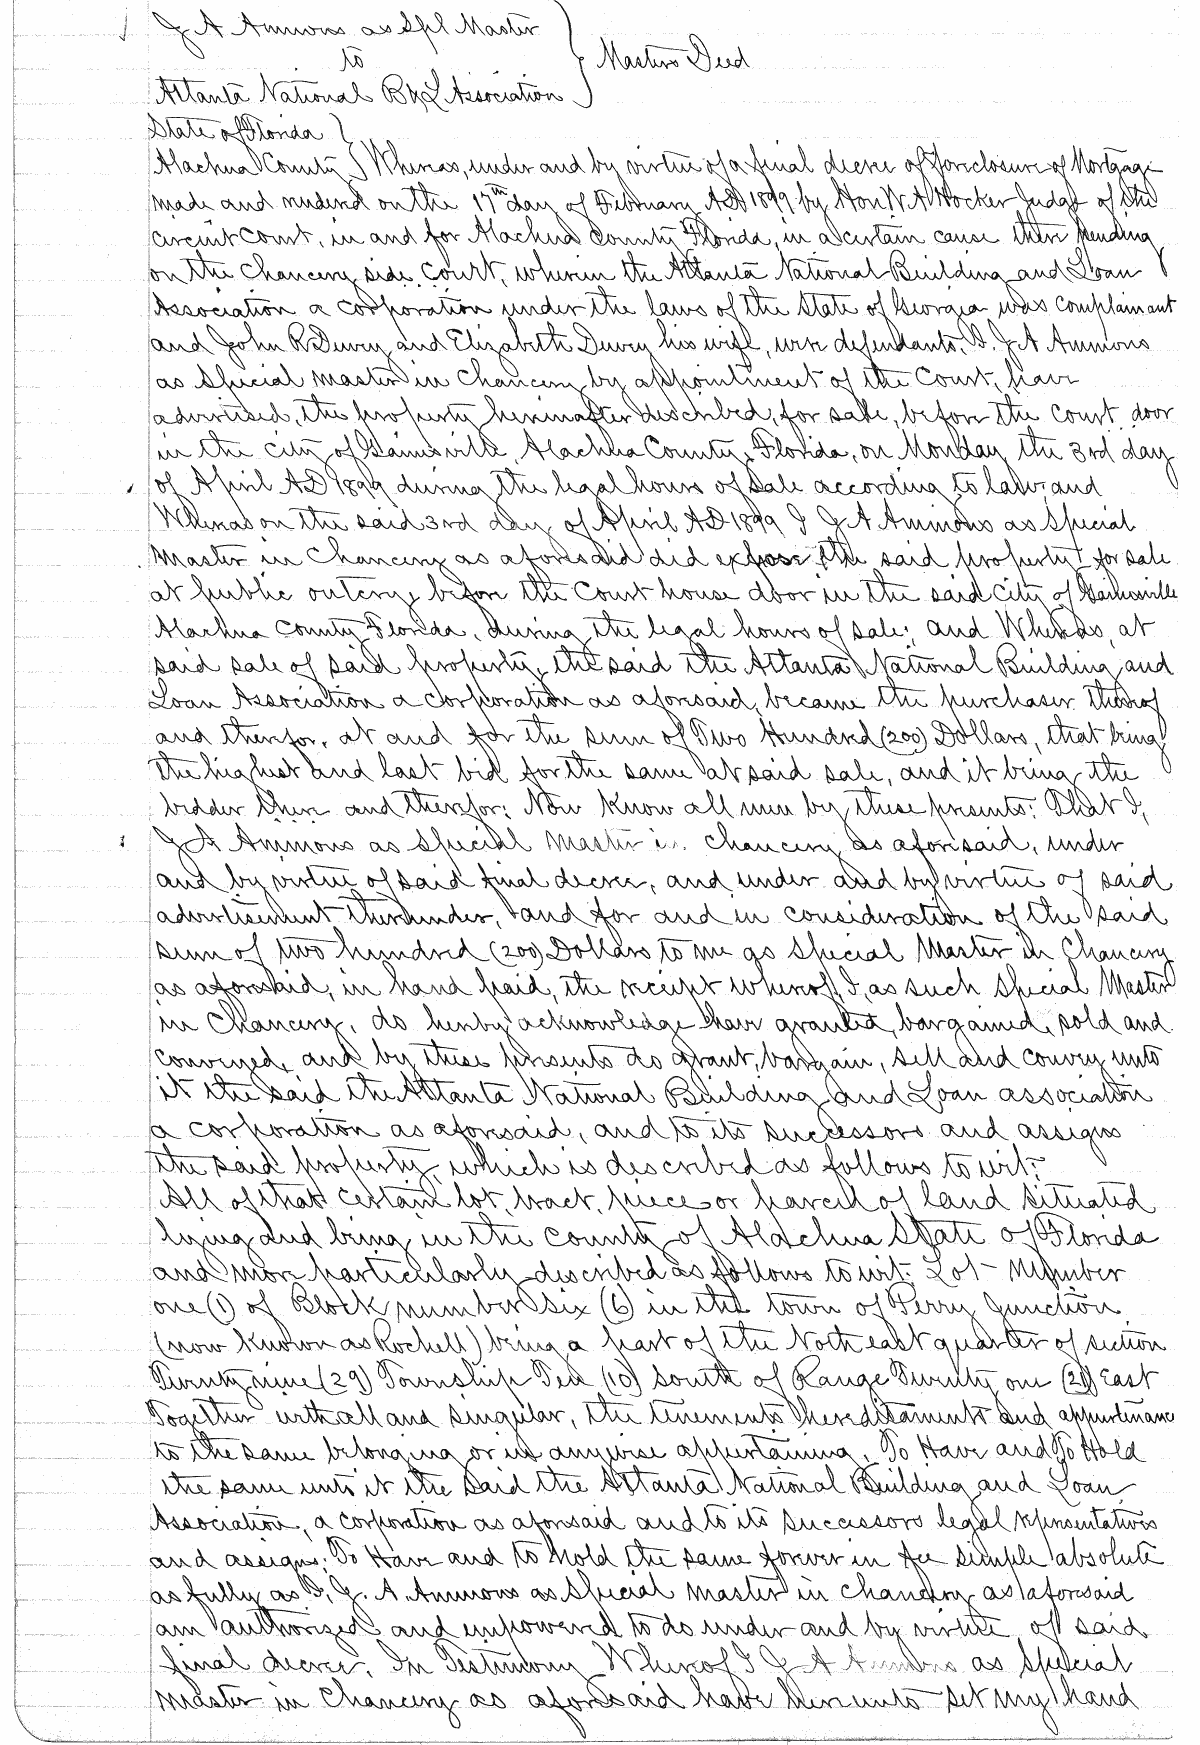 J A Ammons as Spl Master
to
Masters Deed
Atlanta National B & L Association
State of Florida
Alachua County Whereas, under and by virtue of a final decree of foreclosure of Mortgage
made and rendered on the 17th day of February AD 1899 by Hon W A Hocker Judge of the
Circuit Court, in and for Alachua County Florida, in a certain cause then pending
on the chancery side court, wherein the Atlanta National Building and Loan
Association a corporation under the laws of the State of Georgia was complainant
and John R Dewey and Elizabeth Dewey his wife, were defendants, I. J A Ammons
as Special master in Chancery by appointment of the Court, have
advertised, the property hereinafter described, for sale, before the court door
in the city of Gainesville, Alachua County, Florida, on Monday the 3rd day
of April AD 1899 during the legal hours of sale according to law, and
Whereas on the said 3rd day of April AD 1899 I J A Ammons as Special
Master in Chancery as aforesaid did expose the said property for sale
at public outcry, before the Court house door in the said City of Gainesville
Alachua County Florida, during the legal hours of sale; and Whereas, at
said sale of said property, the said the Atlanta National Building and
Loan Association a corporation as aforesaid, became the purchaser thereof
and therefor, at and for the sum of Two Hundred (200) Dollars, that being
the highest and last bid for the same at said sale, and it being the
bidder there and therefor: Now Know all men by these presents: That I,
J A Ammons as Special Master in Chancery as aforesaid, under
and by virtue of said final decree, and under and by virtue of said
advertisement thereunder, and for and in consideration of the said
sum of two hundred (200) Dollars to me as Special Master in Chancery
as aforesaid, in hand paid, the receipt whereof, I, as such Special Master
in Chancery, do hereby acknowledge have granted, bargained, sold and
conveyed, and by these presents do grant, bargain, sell and convey unto
it the said the Atlanta National Building and Loan association
a corporation as aforesaid, and to its successors and assigns
the said property, which is described as follows to wit:
All of that certain lot, tract, piece or parcel of land situated
lying and being in the County of Alachua State of Florida
and more particularly described as follows to wit: Lot - Number
one (1) of Block number six (6) in the town of Perry Junction
(now known as Rochell) being a part of the North east quarter of section
Twenty nine (29) Township Ten (10) south of Range Twenty one (21) East
Together with all and singular, the tenements hereditaments and appurtenance
to the same belonging or in anywise appertaining. To Have and To Hold
the same unto it the said the Atlanta National Building and Loan
Association, a corporation as aforesaid and to its successors legal representatives
and assigns; To Have and to hold the same forever in fee simple absolute
as fully as I, J. A. Ammons as Special master in chancery as aforesaid
am authorized and empowered to do under and by virtue of said
final decree. In Testimony Whereof I J A Ammons as Special
Master in Chancery as aforesaid have hereunto set my hand